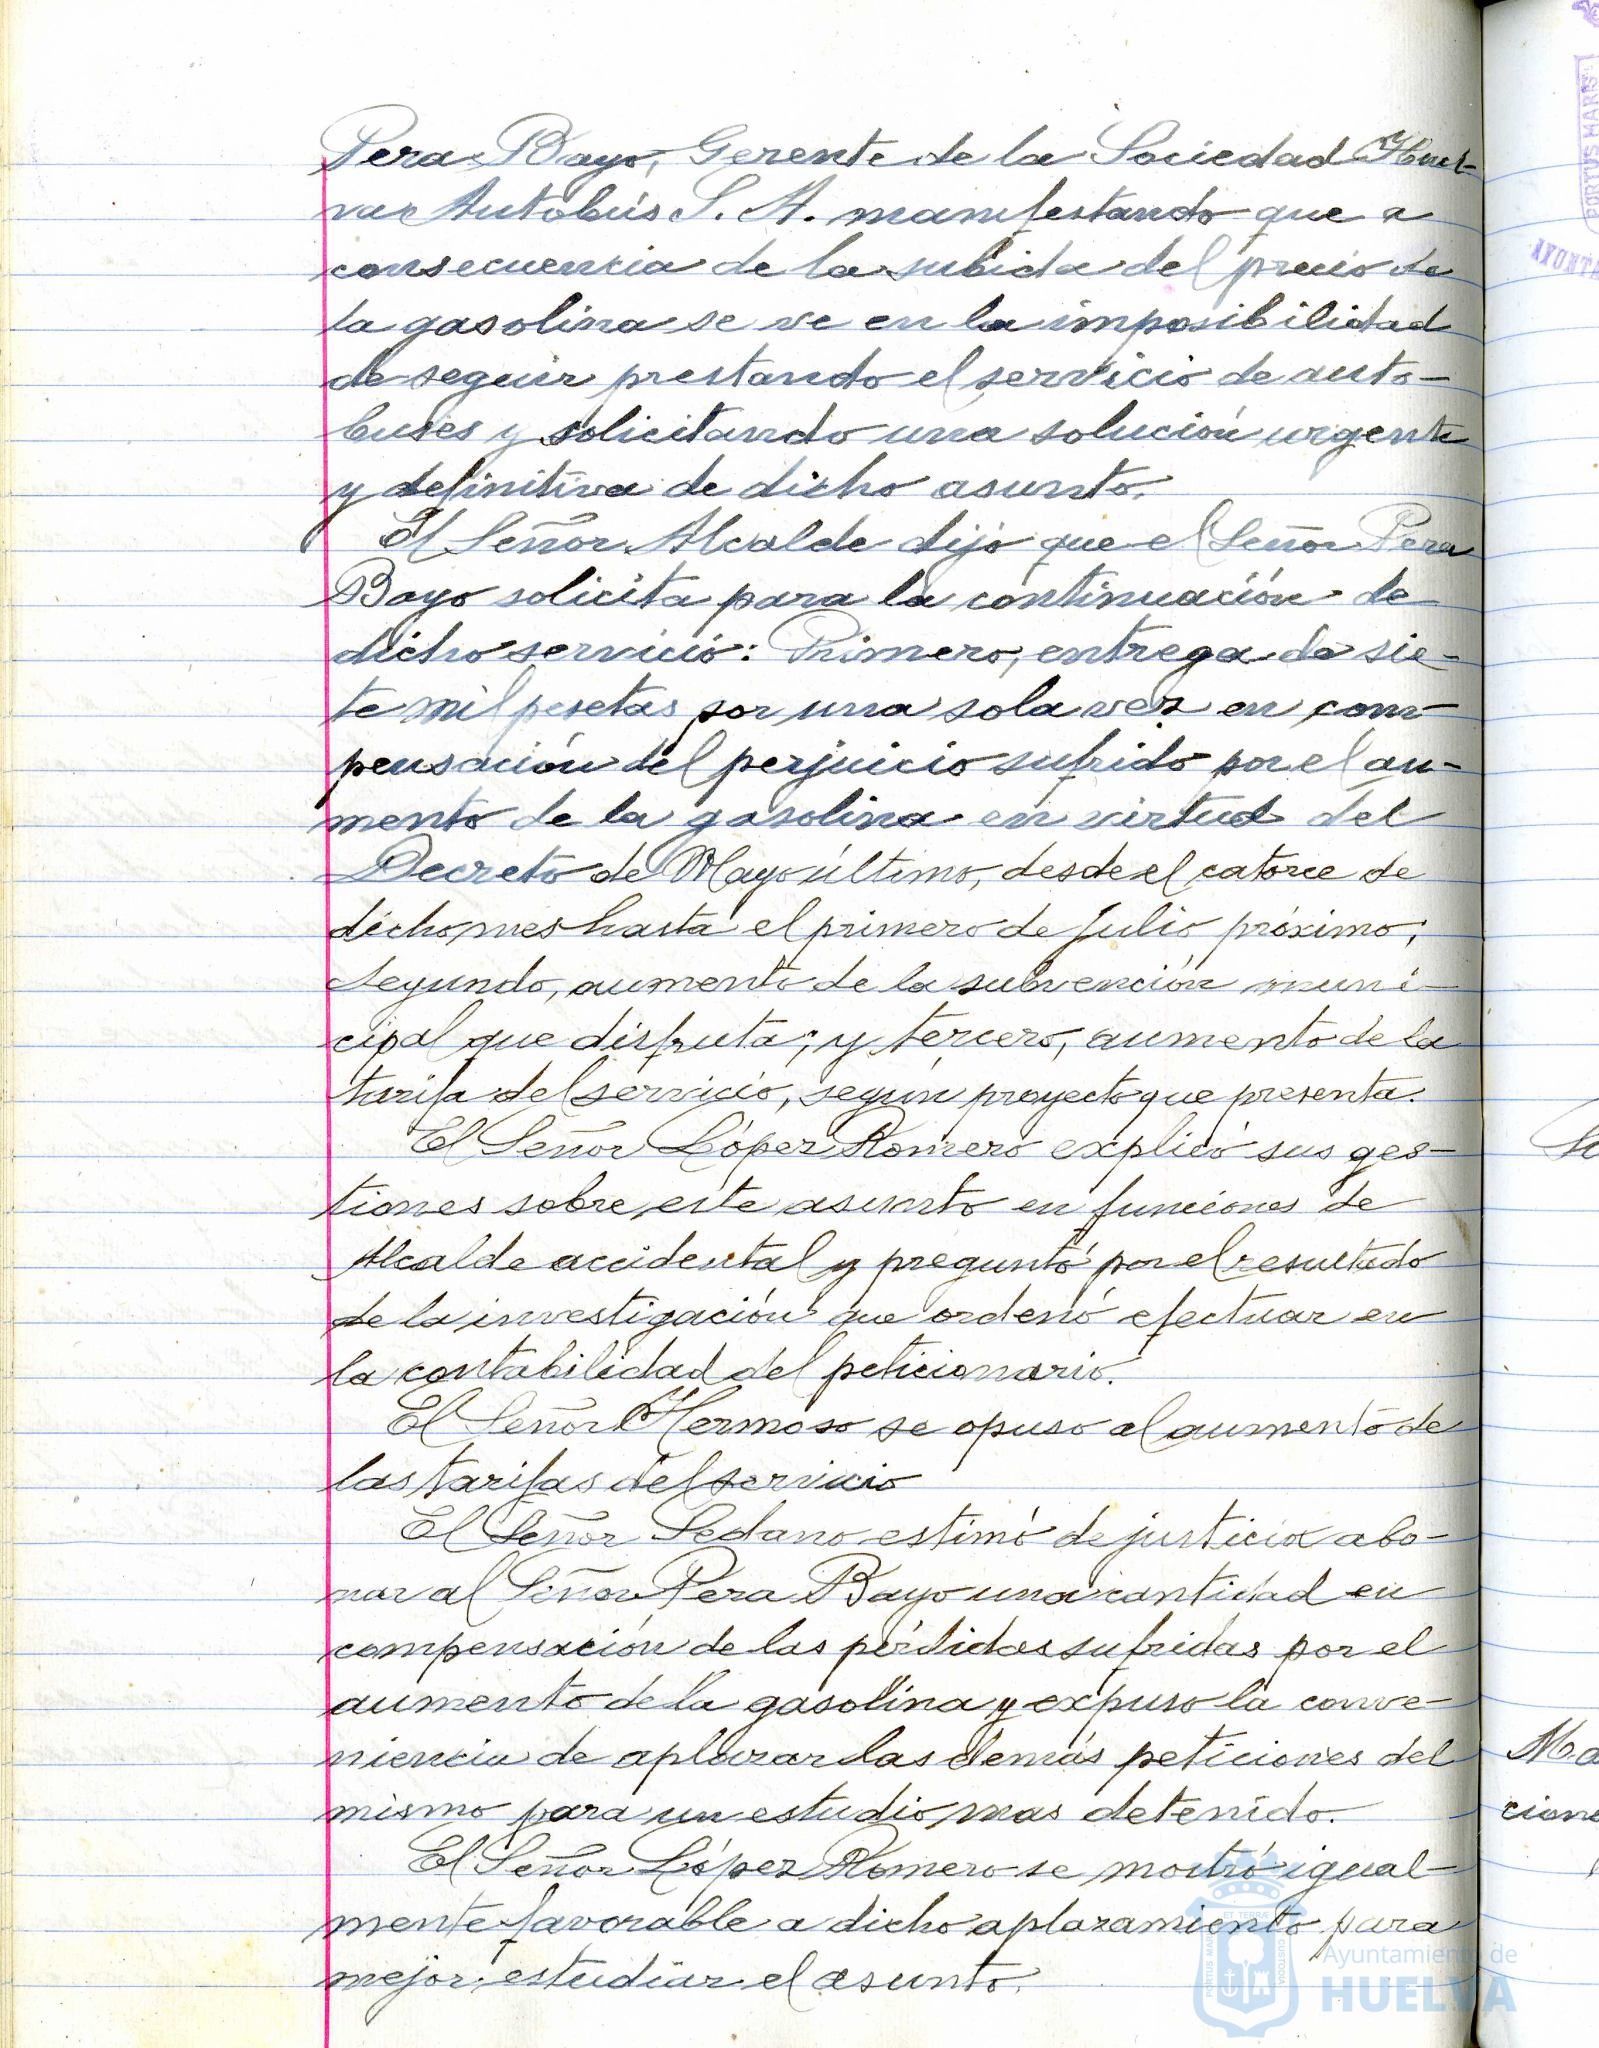 Pera Bayo, Gerente de la Sociedad Huel-
va Autobús S. A. manifestando que a
consecuencia de la subida del precio de
la gasolina se ve en la imposibilidad
de seguir prestando el servicio de auto-
buses y solicitando una solución urgente
y definitiva de dicho asunto.
El Señor Alcalde dijo que el Señor Pera
Bayo solicita para la continuación de
dicho servicio: Primero, entrega de sie-
te mil pesetas por una sola vez en com-
pensación del perjuicio sufrido por el au-
mento de la gasolina en virtud del
Decreto de Mayo último, desde el catorce de
dicho mes hasta el primero de Julio próximo;
Segundo, aumento de la subvención muni-
cipal que disfruta; y tercero, aumento de la
tarifa del servicio, según proyecto que presenta.
El Señor López Romero explicó sus ges-
tiones sobre este asunto en funciones de
Alcalde accidental y preguntó por el resultado
de la investigación que ordenó efectuar en
la contabilidad del peticionario.
El Señor Hermoso se opuso al aumento de
las tarifas del servicio
El Señor Sedano estimó de justicia abo-
nar al Señor Pera Bayo una cantidad en
compensación de las pérdidas sufridas por el
aumento de la gasolina y expuso la conve-
niencia de aplazar las demás peticiones del
mismo para un estudio mas detenido.
El Señor López Romero se mostró igual-
mente favorable a dicho aplazamiento para
mejor estudiar el asunto.
PORTUS MARIS
ET TERRÆ
CUSTODIA
Ayuntamiento de
HUELVA
PORTUS MARIS
AYUNTA
Ma
cione